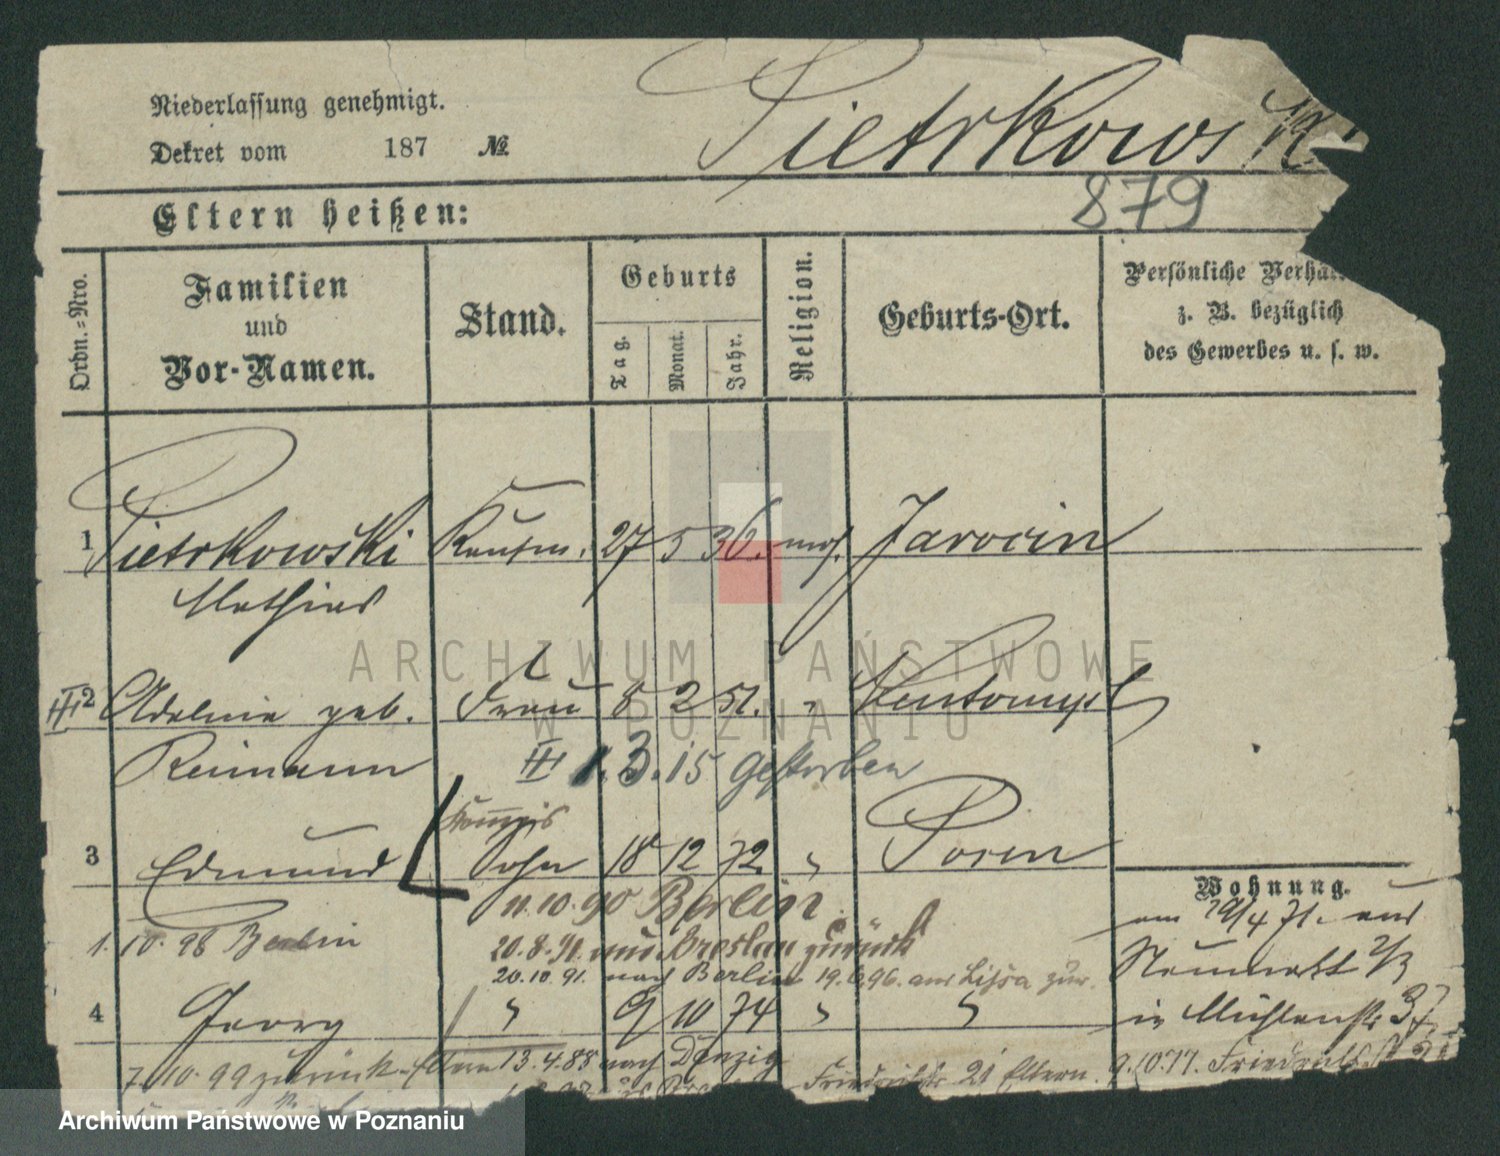 Niederlassung genehmigt.
Dekret vom 187 №
Pietrkowski
879
Eltern heißen:
Ordn.-Nro.
Familien
und
Vor-Namen.
Stand.
Geburts
Tag.
Monat.
Jahr.
Religion.
Geburts-Ort.
Persönliche
z. B. bezüglich
des Gewerbes u. s. w.
1 Pietrkowski Kaufm. 27 5 36. mos. Jarocin
Mathias
III 2 Adeline geb. Frau 8 2 51. " Neutomysl
Reimann III 1.3.15 gestorben
3 Edmund Sohn 18 12 72. " Posen
Wohnung.
11.10.90 Berlin.
am 29/4 71. aus
1. 10. 98 Berlin 20.8.91. aus Breslau zurück
20.10.91. nach Berlin 19.6.96. aus Lissa zur.
Neumarkt 2/3
4 Georg " 9 10 74 " "
in Mühlenstr
7. 10. 99 zurück 13.4.88 nach Danzig
Friedrichstr. 21 Eltern. 9.10.77. Friedrichstr
ARCHIWUM PAŃSTWOWE
W POZNANIU
Archiwum Państwowe w Poznaniu